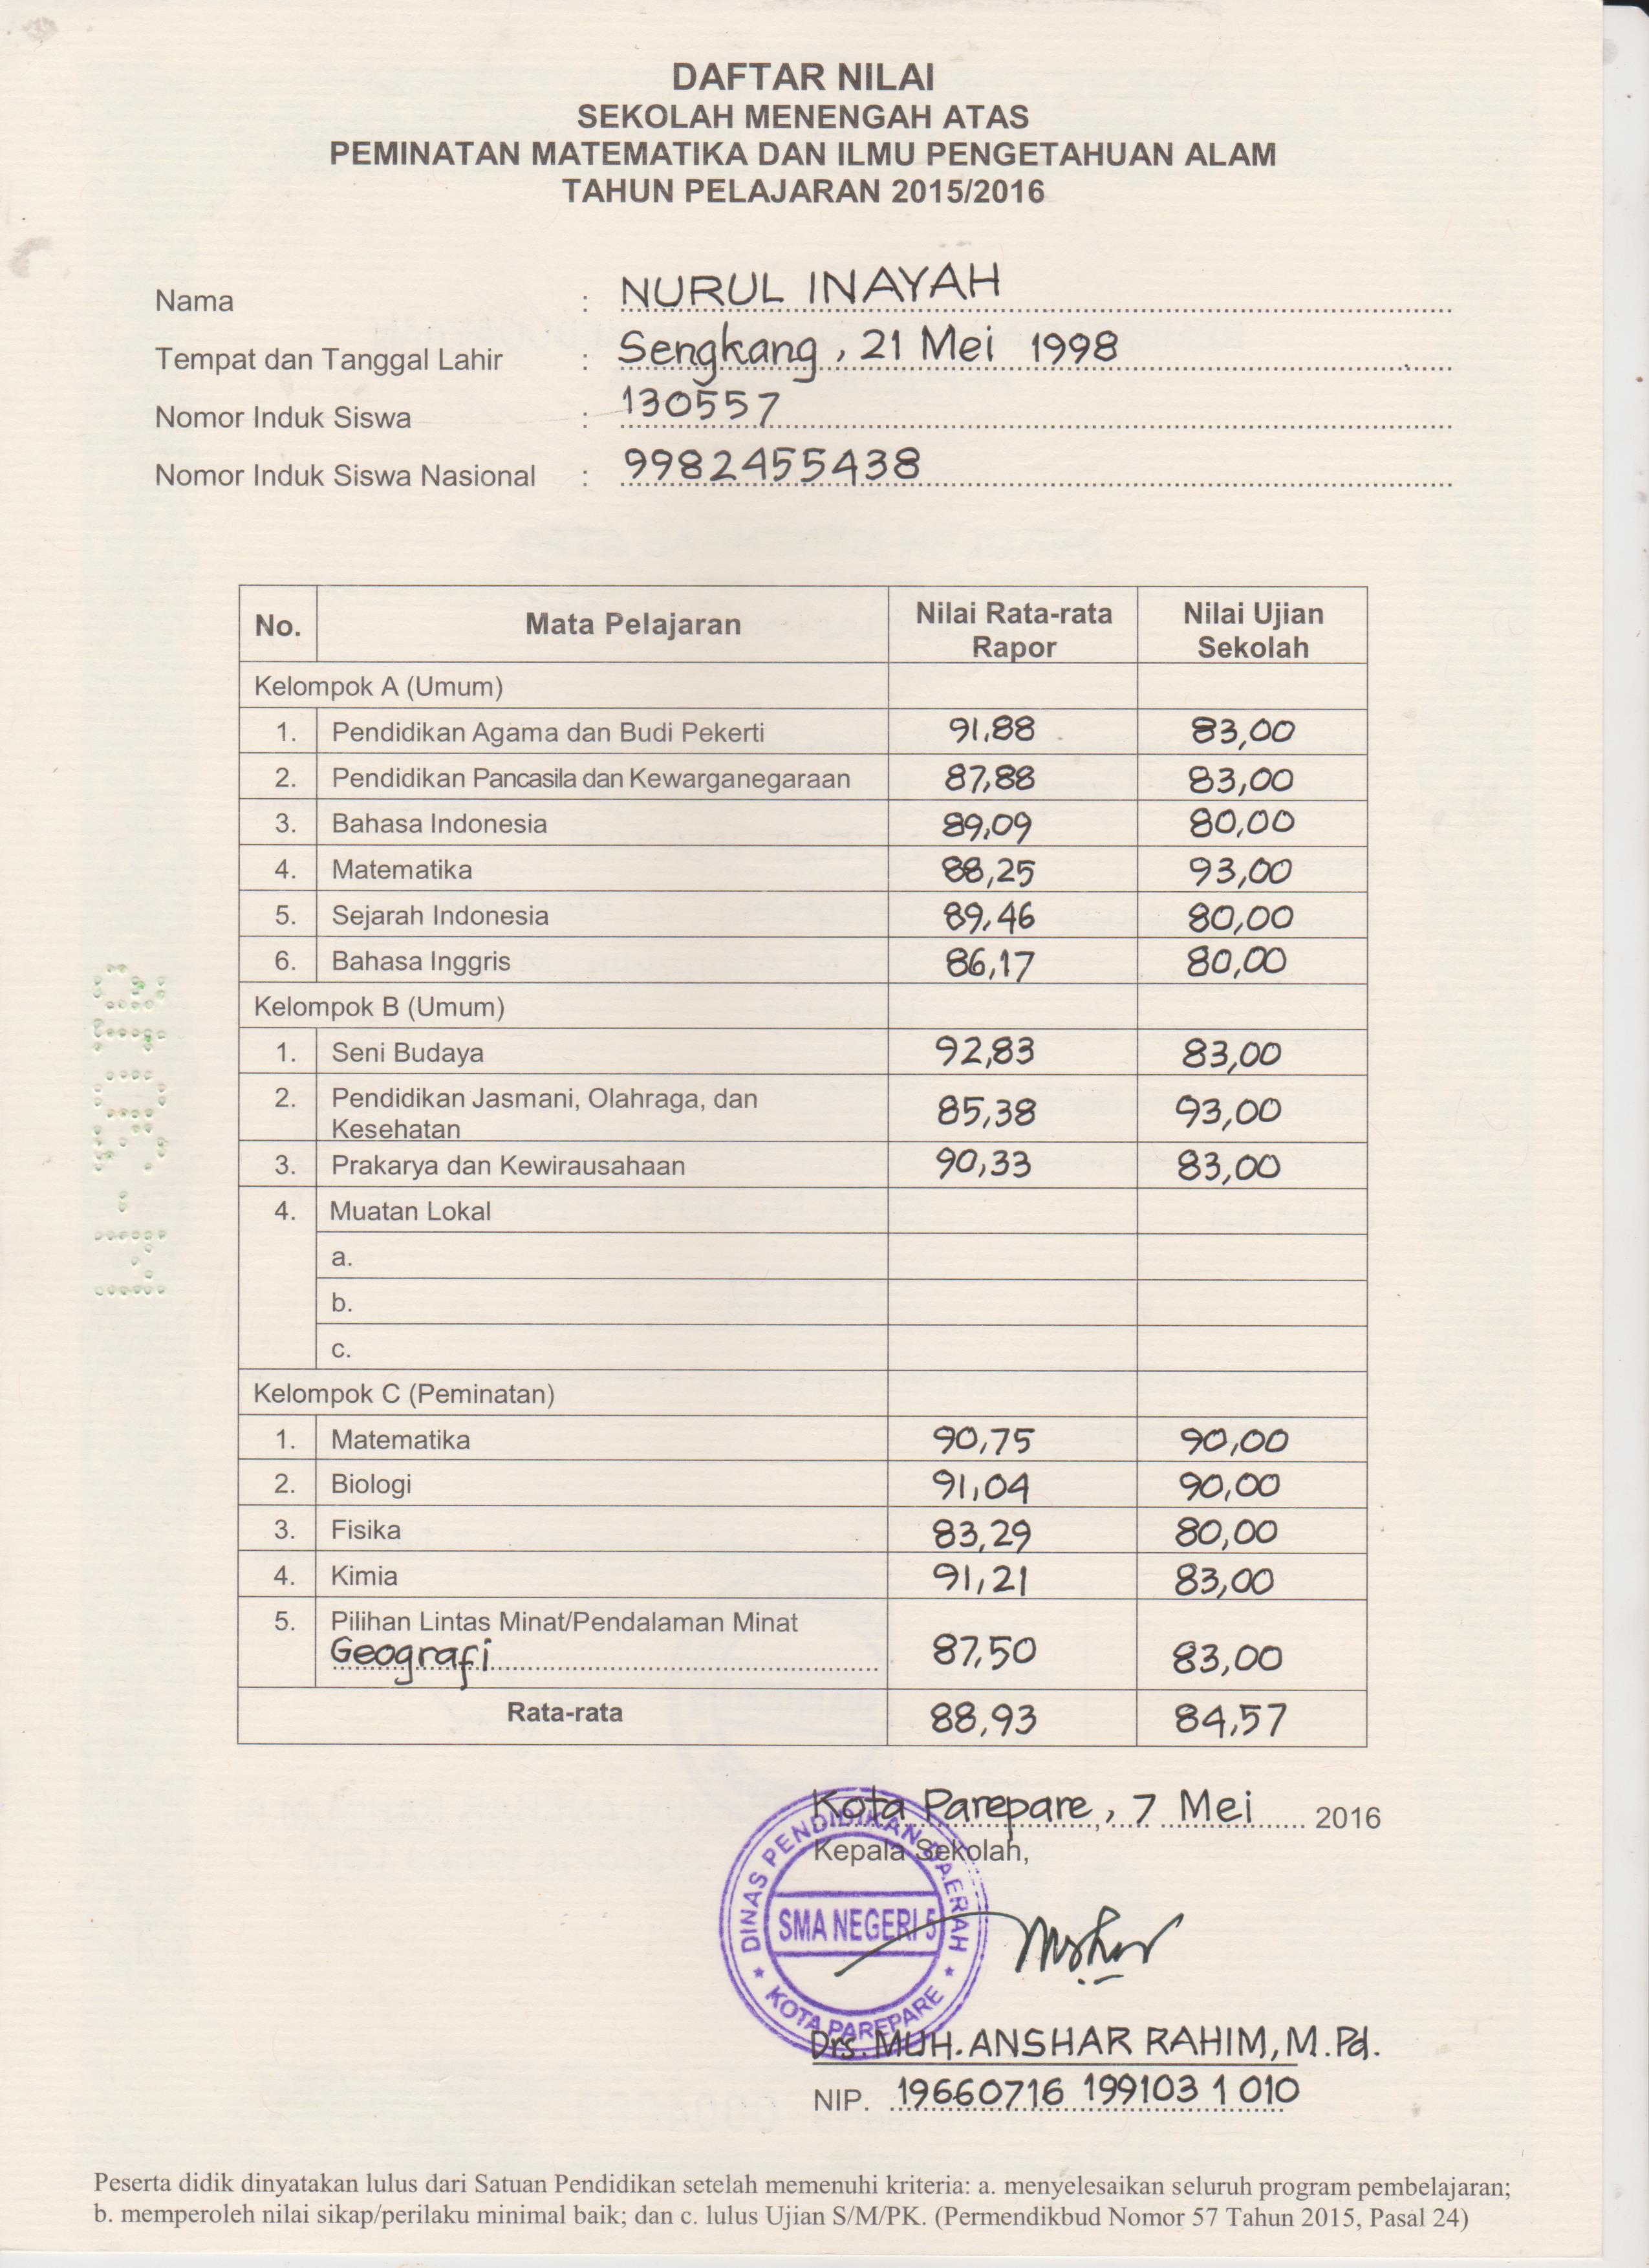 DAFTAR NILAI
SEKOLAH MENENGAH ATAS
PEMINATAN MATEMATIKA DAN ILMU PENGETAHUAN ALAM
TAHUN PELAJARAN 2015/2016
Nama : NURUL INAYAH
Tempat dan Tanggal Lahir : Sengkang, 21 Mei 1998
Nomor Induk Siswa : 130557
Nomor Induk Siswa Nasional : 9982455438
No. Mata Pelajaran Nilai Rata-rata Rapor Nilai Ujian Sekolah
Kelompok A (Umum)
1. Pendidikan Agama dan Budi Pekerti 91,88 83,00
2. Pendidikan Pancasila dan Kewarganegaraan 87,88 83,00
3. Bahasa Indonesia 89,09 80,00
4. Matematika 88,25 93,00
5. Sejarah Indonesia 89,46 80,00
6. Bahasa Inggris 86,17 80,00
Kelompok B (Umum)
1. Seni Budaya 92,83 83,00
2. Pendidikan Jasmani, Olahraga, dan Kesehatan 85,38 93,00
3. Prakarya dan Kewirausahaan 90,33 83,00
4. Muatan Lokal
a.
b.
c.
Kelompok C (Peminatan)
1. Matematika 90,75 90,00
2. Biologi 91,04 90,00
3. Fisika 83,29 80,00
4. Kimia 91,21 83,00
5. Pilihan Lintas Minat/Pendalaman Minat
Geografi 87,50 83,00
Rata-rata 88,93 84,57
Kota Parepare, 7 Mei 2016
Kepala Sekolah,
DINAS PENDIDIKAN DAERAH
SMA NEGERI 5
KOTA PAREPARE
Drs. MUH. ANSHAR RAHIM, M.Pd.
NIP. 19660716 199103 1 010
Peserta didik dinyatakan lulus dari Satuan Pendidikan setelah memenuhi kriteria: a. menyelesaikan seluruh program pembelajaran;
b. memperoleh nilai sikap/perilaku minimal baik; dan c. lulus Ujian S/M/PK. (Permendikbud Nomor 57 Tahun 2015, Pasal 24)